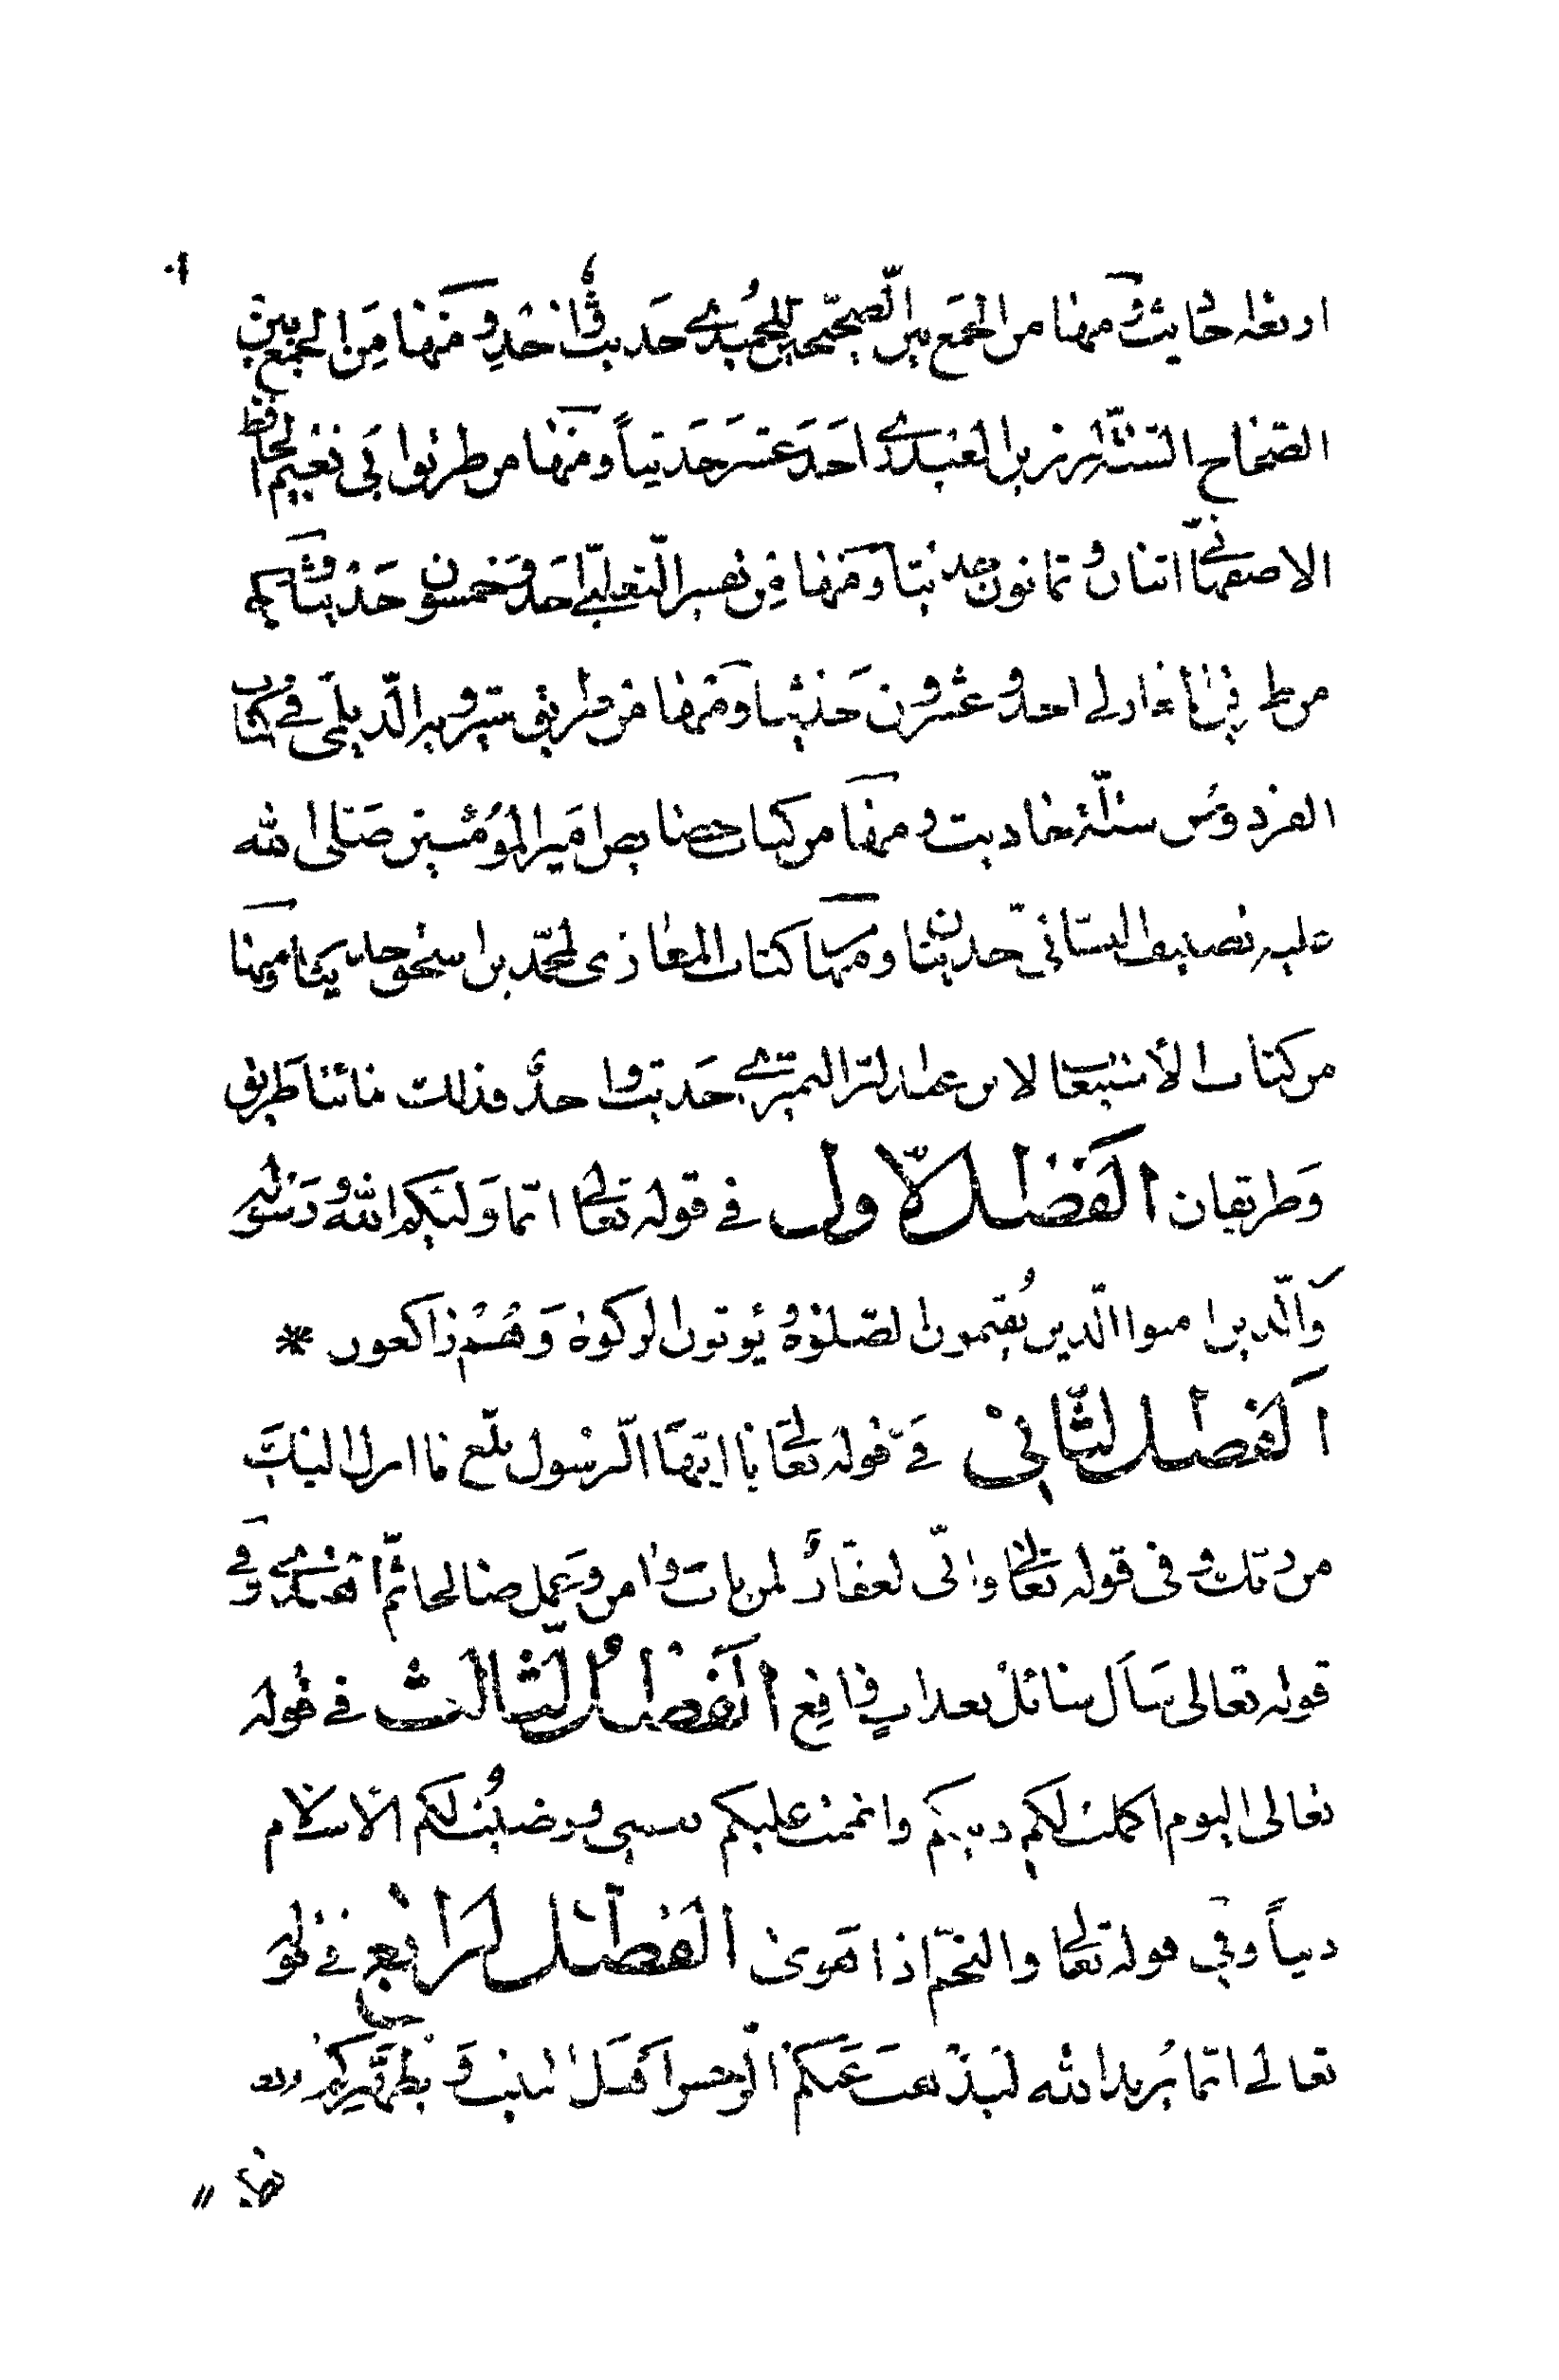 اربعة احاديث ومنها من الجمع بين الصحيحين للحميدي حديث واحد ومنها من الجمع بين
الصحاح الستة لرزين العبدري احد عشر حديثاً ومنها من طريق ابي نعيم الحافظ
الاصفهاني اثنان وثمانون حديثاً ومنها من تفسير الثعلبي احد وخمسون حديثاً
من طريق احد وعشرون حديثا ومنها من طريق شيرويه الديلمي في كتاب
الفردوس ستة احاديث ومنها من كتاب خصايص امير المؤمنين صلى الله
عليه تصنيف حديثا ومنها كتاب المغازى لمحمد بن اسحق حديثا ومنها
من كتاب الاستيعاب لابن عبد البر النمري حديث واحد فذلك مائتا طريق
وطريقان الفصل الاول في قوله تعالى انما وليكم الله ورسوله
والذين امنوا الذين يقيمون الصلوة ويؤتون الزكوة وهم راكعون *
الفصل الثاني في قوله تعالى يا ايها الرسول بلغ ما انزل اليك
من ربك وفى قوله تعالى وانى لغفار لمن تاب وامن وعمل صالحا ثم اهتدى وفي
قوله تعالى سأل سائل بعذاب واقع الفصل الثالث في قوله
تعالى اليوم اكملت لكم دينكم واتممت عليكم نعمتى ورضيت لكم الاسلام
ديناً وفي قوله تعالى والنجم اذا هوى الفصل الرابع في قوله
تعالى انما يريد الله ليذهب عنكم الرجس اهل البيت ويطهركم